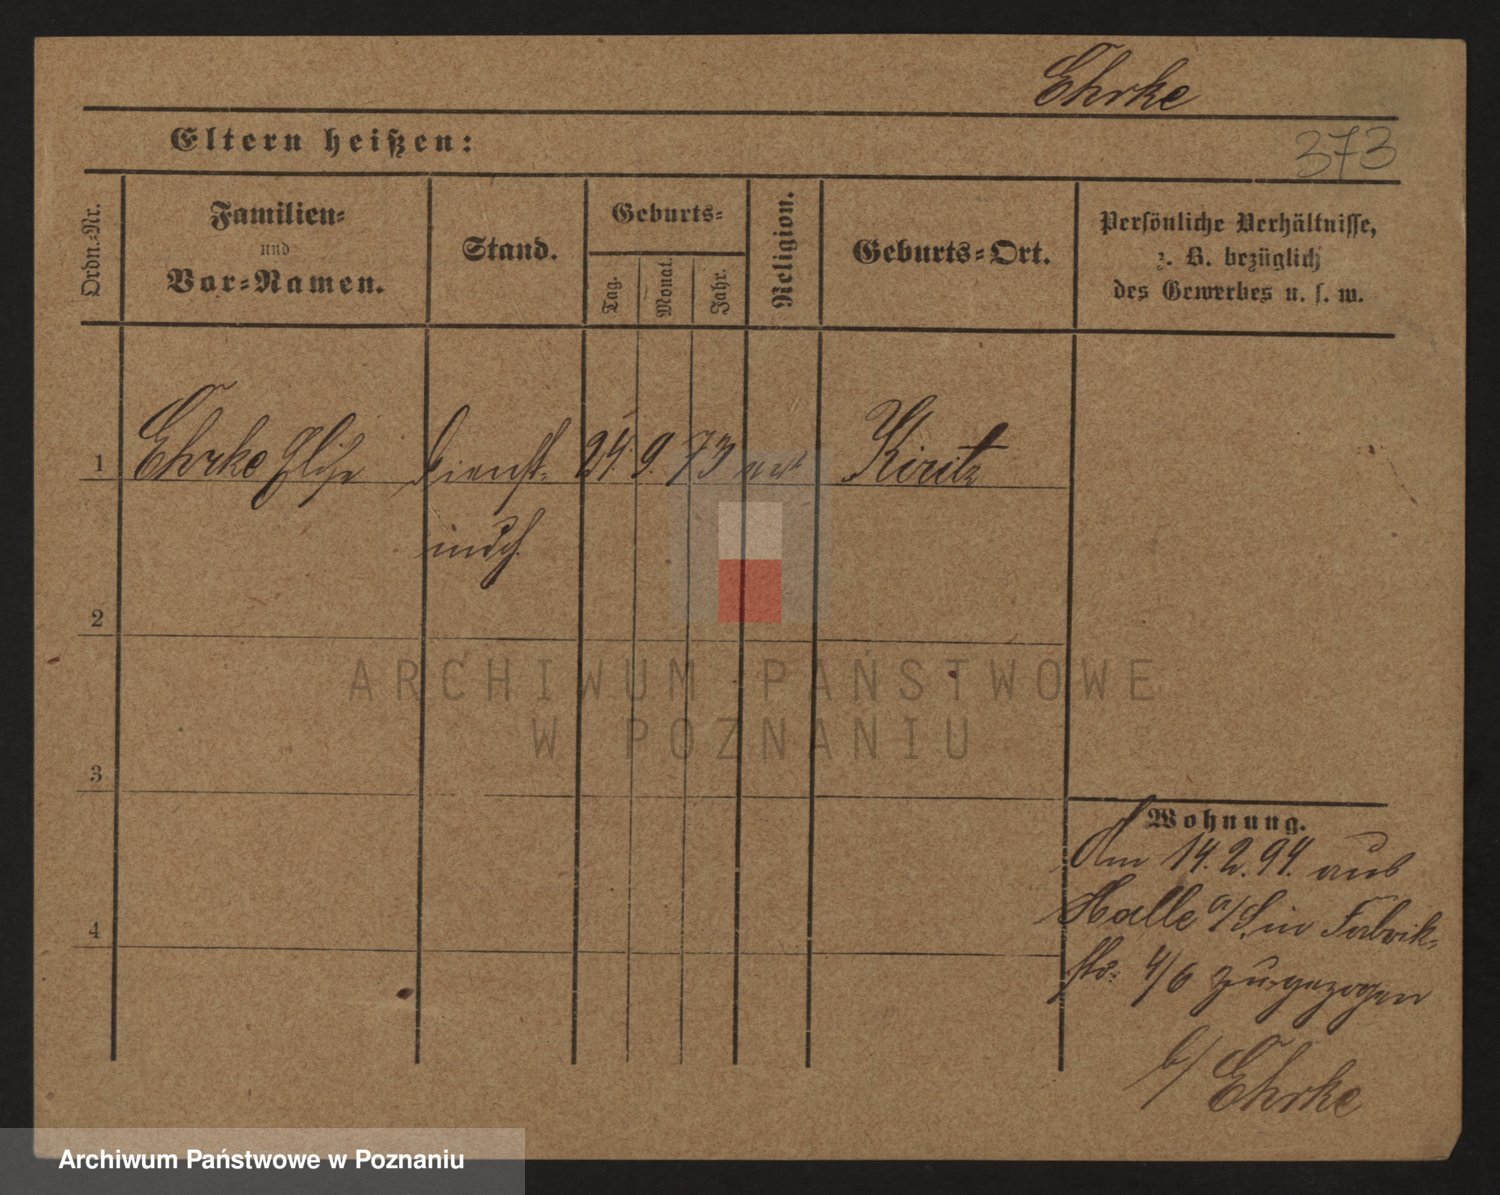 Ehrke
Eltern heißen:
373
Ordn.-Nr.
Familien-
und
Vor-Namen.
Stand.
Geburts-
Tag.
Monat.
Jahr.
Religion.
Geburts-Ort.
Persönliche Verhältnisse,
z. B. bezüglich
des Gewerbes u. s. w.
1 Ehrke Elise Dienst- 24. 9. 73 Kiritz
mdch.
2
3
4
Wohnung.
Am 14. 2. 94. aus
Halle a/S. in Fabrik-
str. 4/6 zugezogen
b/ Ehrke
ARCHIWUM PAŃSTWOWE
W POZNANIU
Archiwum Państwowe w Poznaniu